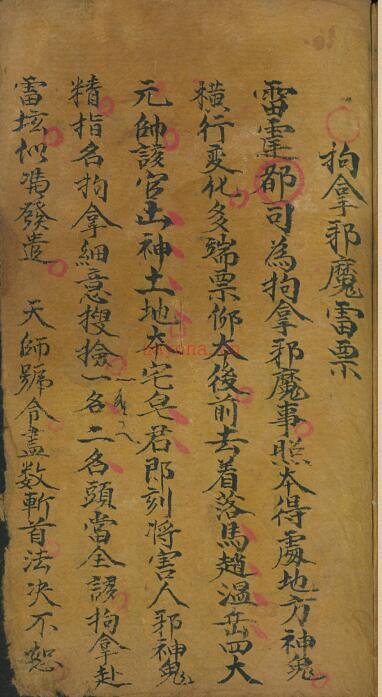 拘拿邪魔雷票
雷霆都司為拘拿邪魔事照本得處地方神鬼
橫行变化多端票仰本後前去着落馬趙溫岳四大
元帥該官山神土地本宅皂君即刻将害人邪神鬼
精指名拘拿細意搜撿一名二名頭當全諺拘拿赴
雷壇似馮發遣　天師號令盡數斬首法决不恕